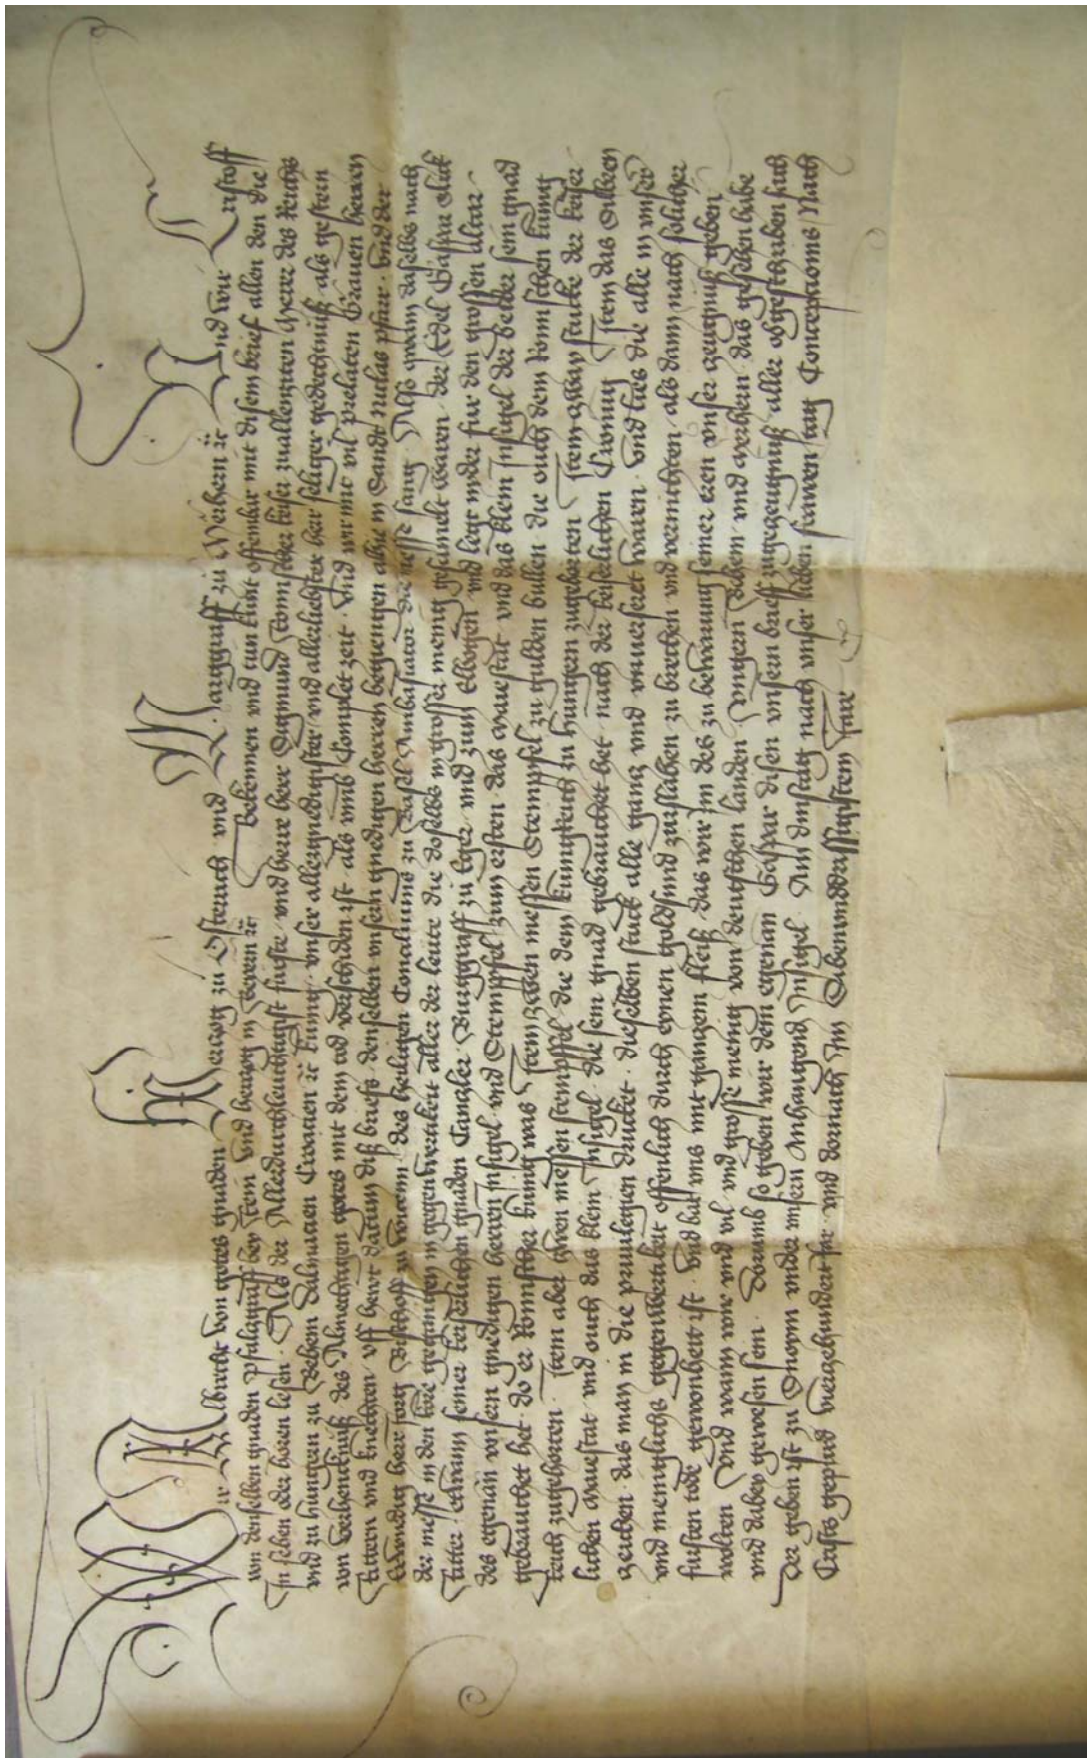 Wir Albrecht von gotes gnaden Herczog zu Osterreich und Marggraff zu Merhern ꝛc Und wir Cristoff
von denselben gnaden pfalczgraff bey Rein und herczog in Beyern ꝛc Bekennen und tun kunt offembar mit disem brief allen den die
In sehen oder horen lesen. Als der Allerdurchleuchtigist furste und herre herr Sigmund Romischer keiser zuallenczten Merer des Reichs
und zu hungern zu Behem Dalmacien Croacien ꝛc kunig. unser allergnedigister und allerliebster herr seliger gedechtniß als gestern
von verhencknuß des Almechtigen gotes mit dem tod verschiden ist. als umb Complet zeit. Und wir mit vil prelaten Grauen herren
Rittern und knechten uff hewt datum diß briefs. denselben unsern gnedigen herren beyengen alhie in Sandt Niclas pfarr. Und der
Erwirdig herr Bischoff zu des heiligen Conciliums zu Basel Ambasiator die messe sang. Als quam daselbs nach
der messe in den kore gegangen in gegenwertikeit aller der leute die doselbs in grosser menig gesammelt waren. der Edel Caspar Slick
Ritter. ettwann seiner keiserlichen gnaden Canczler. Burggraff zu Eger und zum Elbogen und legt nider fur den grossen altar
des egenan unsern gnedigen herren Insigel und Stemppfel. zum ersten das Maiestat und das klein Insigel der beider sein gnad
gebrauchet het. do er Romischer kunig was Item czwen messen Stemppfel zu gulden bullen die ouch dem Romischen kunig
reich zugehoren. Item aber czwen messen stemppfel die dem kunigreich zu hungern zugehorten Item czway stucke der keiser
lichen Maiestat und ouch das klein Insigel. die sein gnad gebrauchet het. nach der keiserlichen Cronung Item das Silbrein
zeichen. das man in die priuilegien drucket. dieselben stuck alle gancz und unuerseret waren. Und lies die alle in unser
und meniglichs gegenwertikeit offenlich durch eynen goldsmid zurslahen zu brechen und vernichten. als dann nach solicher
fursten tode gewonheit ist. Und bat uns mit ganczem fleiß. das wir im des zu bewarung seiner eren unser gezeugnuß geben
wolten Und wann wir und vil und grosse menig von deutschen landen Ungern Behem und Merhern. das gesehen habe
und dabey gewesen sein. Dorumb so geben wir dem egenan Caspar disen unsern brieff zugezeugnuß aller obgeschriben such
Der geben ist zu Snoym under unsern Anhangend Insigel. Am dinstag nach unser lieben frawen tag Concepcionis Nach
Crists gepurd vierczehundert jar. und dornach Im Sibenunddrissigistem Jare